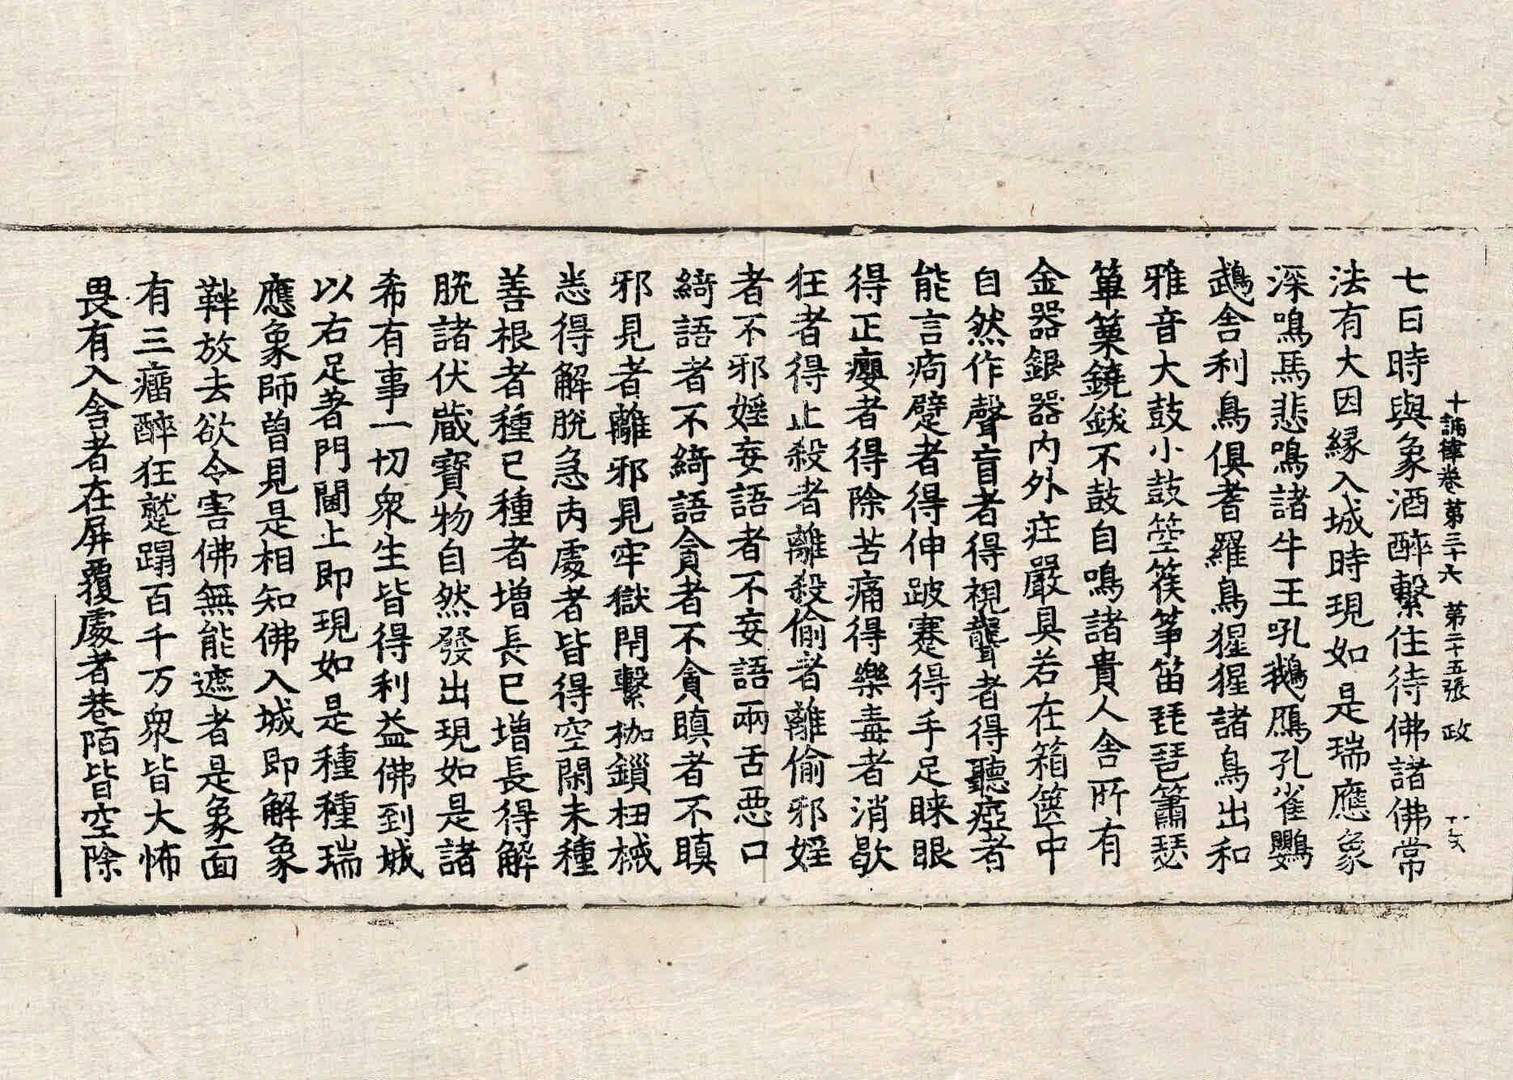 七日時與象酒醉繫住待佛諸佛常
十誦律卷第三十六 第二十五張 政
法有大因緣入城時現如是瑞應象
深鳴馬悲鳴諸牛王吼鵝鴈孔雀鸚
鵡舍利鳥俱耆羅鳥猩猩諸鳥出和
雅音大鼓小鼓箜篌筝笛琵琶簫瑟
篳篥鐃鈸不鼓自鳴諸貴人舍所有
金器銀器內外庄嚴具若在箱篋中
自然作聲盲者得視聾者得聽瘂者
能言痀躄者得伸跛蹇得手足睞眼
得正癭者得除苦痛得樂毒者消歇
狂者得止殺者離殺偷者離偷邪婬
者不邪婬妄語者不妄語兩舌惡口
綺語者不綺語貪者不貪瞋者不瞋
邪見者離邪見牢獄閇繫枷鎖杻械
悉得解脫急𠩄處者皆得空閑未種
善根者種已種者增長已增長得解
脫諸伏藏寶物自然發出現如是諸
希有事一切衆生皆得利益佛到城
以右足著門閫上即現如是種種瑞
應象師曾見是相知佛入城即解象
靽放去欲令害佛無能遮者是象面
有三瘤醉狂蹵蹋百千万衆皆大怖
畏有入舍者在屏覆處者巷陌皆空除